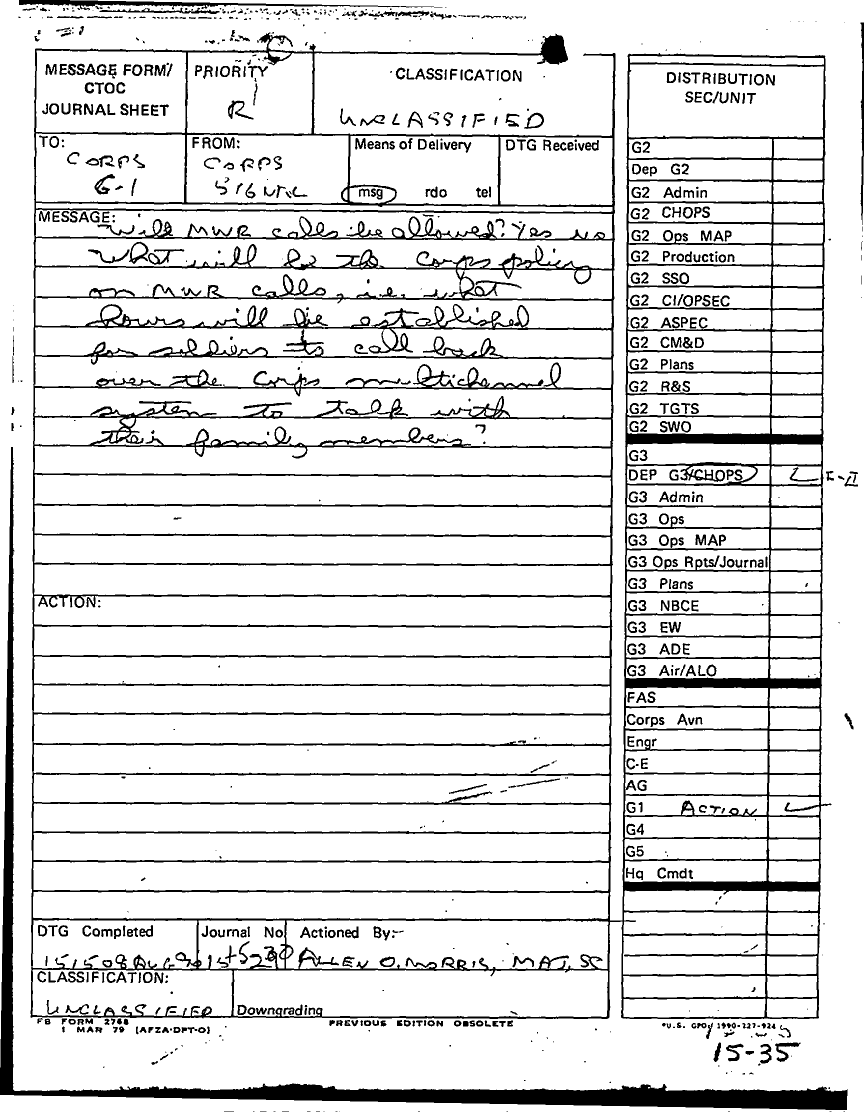 MESSAGE FORM/
CTOC
JOURNAL SHEET
PRIORITY
R
CLASSIFICATION
UNCLASSIFIED
TO:
CORPS
G-1
FROM:
CORPS
Means of Delivery
msg rdo tel
DTG Received
MESSAGE:
Will MWR calls be allowed? Yes no
What will be the Corps policy
on MWR calls, i.e. what
hours will be established
for soldiers to call back
over the Corps multichannel
system to talk with
their family members?
ACTION:
DTG Completed
151508AUG90
Journal No
Actioned By:
ALLEN O. MORRIS, MAJ, SC
CLASSIFICATION:
UNCLASSIFIED
Downgrading
FB FORM 2768
1 MAR 79 (AFZA-DPT-O)
PREVIOUS EDITION OBSOLETE
DISTRIBUTION
SEC/UNIT
G2
Dep G2
G2 Admin
G2 CHOPS
G2 Ops MAP
G2 Production
G2 SSO
G2 CI/OPSEC
G2 ASPEC
G2 CM&D
G2 Plans
G2 R&S
G2 TGTS
G2 SWO
G3
DEP G3/CHOPS
G3 Admin
G3 Ops
G3 Ops MAP
G3 Ops Rpts/Journal
G3 Plans
G3 NBCE
G3 EW
G3 ADE
G3 Air/ALO
FAS
Corps Avn
Engr
C-E
AG
G1 ACTION
G4
G5
Hq Cmdt
*U.S. GPO: 1990-727-924
15-35